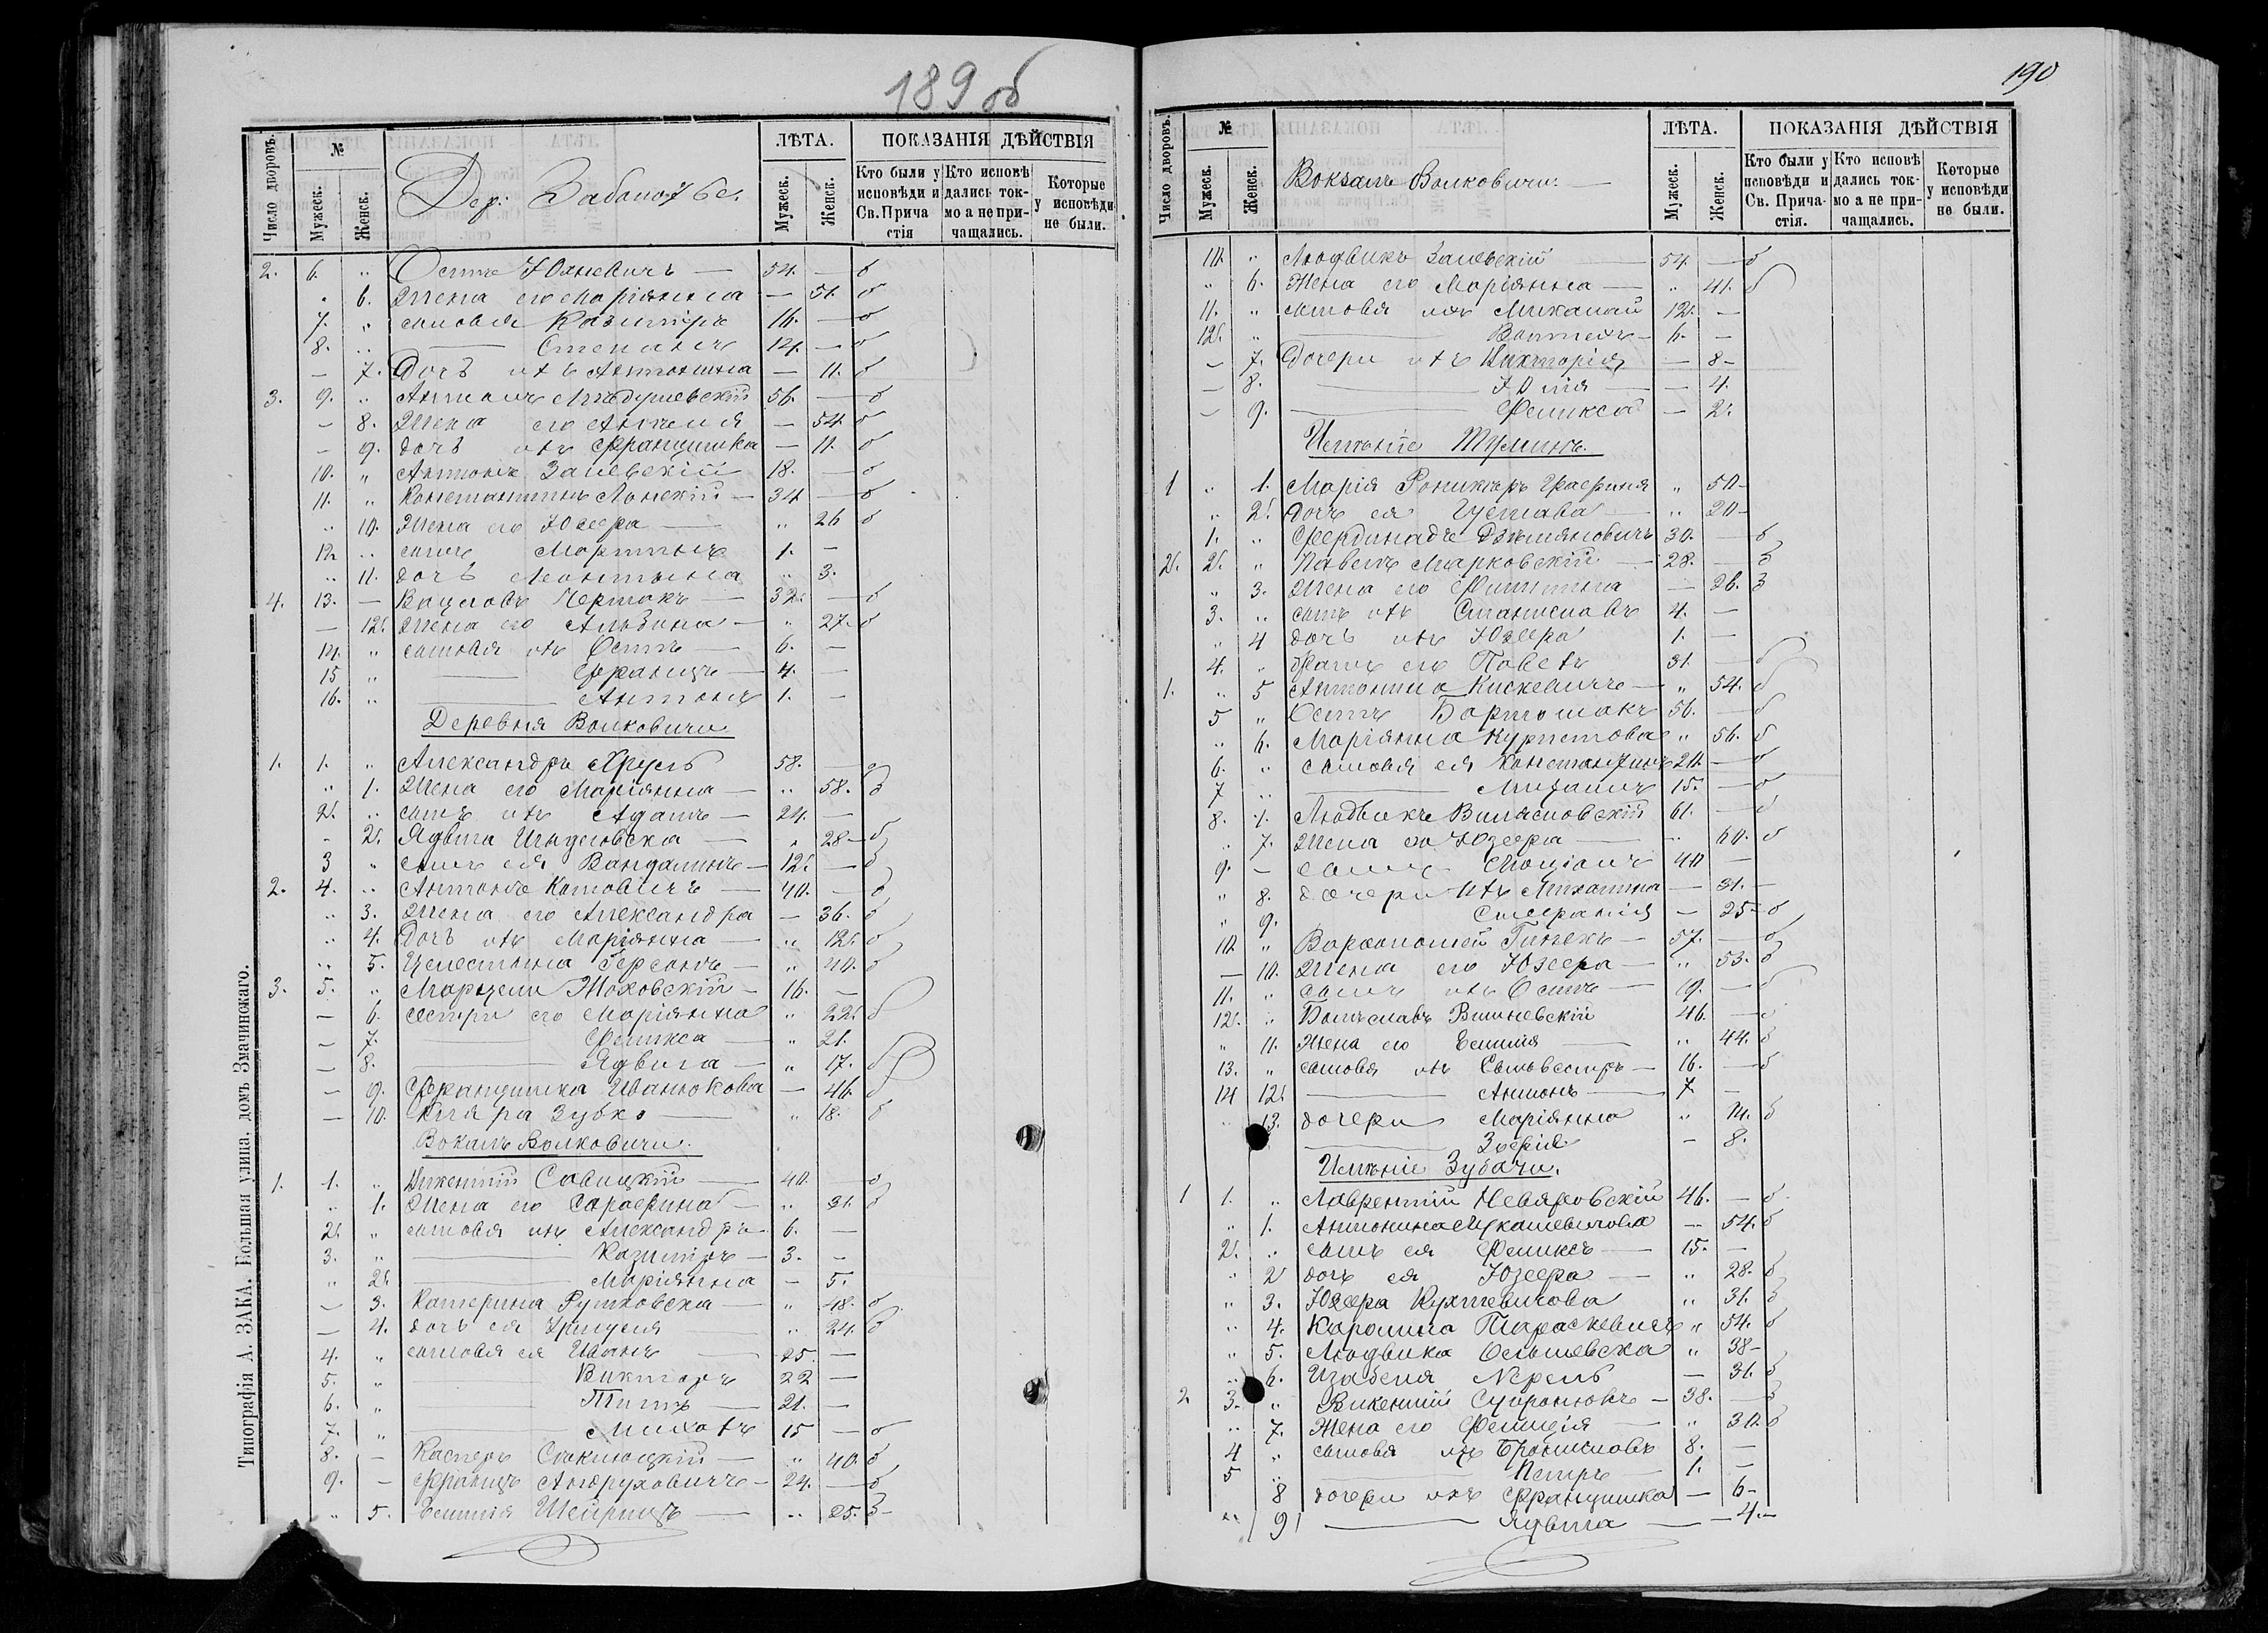 189 об
Число дворовъ. № Мужеск. Женск. Дер. Заболотье. ЛѢТА. Мужеск. Женск. ПОКАЗАНІЯ ДѢЙСТВІЯ
Кто были у исповѣди и Св. Прича стія Кто исповѣ дались ток- мо а не при- чащались. Которые у исповѣди не были.
2. 6. " Осипъ Юхневичъ — 54. — б
" 6. Жена его Маріянна — 51. б
7. " сыновья Казиміръ 16. — б
8. " — Степанъ 14. — б
— 7. Дочь ихъ Антонина — 11. б
3. 9. " Антонъ 56. — б
— 8. Жена его Анеля — 54. б
— 9. дочь ихъ Францишка — 11. б
10. " Антонъ Залевскій 18. — б
11. " Константинъ Лонскій — 34 — б
" 10. Жена его Юзефа — " 26 б
12 " сынъ Мартинъ 1. —
" 11. дочь Леонтина " 3.
4. 13. — Вацлавъ Чертокъ — 32. — б
— 12. Жена его Альбина — " 27. б
14. " сыновья ихъ Осипъ — 6. —
15 " — Францъ — 4. —
16. " — Антонъ 1. —
Деревня Волковичи
1. 1. " Александръ Хруль 58. — б
" 1. Жена его Маріянна — " 58. б
2. " сынъ ихъ Адамъ — 24. —
- 2. Ядвига — " 28 — б
3 " сынъ ея Вандалинъ — 12. — б
2. 4. " Антонъ — 40. — б
" 3. Жена его Александра — 36. б
" 4. Дочь ихъ Маріянна — " 12. б
" 5. Целестина Герсонъ — " 40. б
3. 5. " Марцели Жоховскій — 16. —
— 6. сестры его Маріянна " 22. б
— 7. — Феликса — " 21.
— 8. — Ядвига — " 17. б
— 9. Францишка Иванюкова — 46. б
— 10. Кляра Зубко — " 18. б
Вокзалъ Волковичи.
1. 1. " Викентій Савицкій — 40. — б
" 1. Жена его Сарафина — " 31. б
2. " сыновья ихъ Александръ 6. —
3. " — Казиміръ — 3. —
" 2. — Маріянна — 5.
— 3. Катерина Рутковска — " 48. б
— 4. дочь ея " 24. б
4. " сыновья ея Иванъ — 25. —
5. " — Викторъ 22 —
6. " — Титъ — 21. —
7. " — Михалъ 15 — б
8. — Касперъ — " 40. б
9. — Францъ Андруховичъ — 24. — б
" 5. Емилія — " 25. З —
Типографія А. ЗАКА. Большая улица, домъ Значинскаго.
190
Число дворовъ. № Мужеск. Женск. Вокзалъ Волковичи. — ЛѢТА. Мужеск. Женск. ПОКАЗАНІЯ ДѢЙСТВІЯ
Кто были у исповѣди и Св. Прича- стія. Кто исповѣ дались ток- мо а не при- чащались. Которые у исповѣди не были.
10. " Людвикъ Залевскій — 54. — б
" 6. Жена его Маріянна — " 41. б
11. " сыновья ихъ Михалай 12. —
12. " — 6. —
— 7. Дочери ихъ Викторія — 8 —
— 8. — Юлія — 4.
— 9. — Феликса — 2.
Имѣніе Тумин.
1 " 1. Марія Роникеръ Графиня " 50 —
" 2. дочь ея Густава — " 20 —
1. " Фердинадъ 30. — б
2. 2. " Павелъ Марковскій — 28. — З
" 3. Жена его — 26. З
3. " сынъ ихъ Станиславъ 4. —
" 4 дочь ихъ Юзефа 1. —
4. " братъ его 31. — б
1. " 5 Антонина — " 54. б
5 " Осипъ Бартошакъ 56. — б
" 6. Маріянна " 56. б
6. " сыновья ея Константинъ 20. — б
7 " — Михаилъ 15. — б
8. 1. Людвикъ 61. — б
" 7. Жена его Юзефа — " 60. б
9. — сынъ Люціанъ 40 —
" 8. дочери ихъ Михалина — 31. —
" 9. Стефанія — 25 — б
10. " Варфоломей — 57. — б
— 10. Жена его Юзефа — " 53. б
11. " сынъ ихъ Осипъ — 19. — б
12. " Болеславъ Вишневскій 46. — б
" 11. Жена его Емилія — " 44. б
13. " сыновья ихъ Сильвестръ — 16. — б
14 12. — Антонъ — 7. —
" 13. дочери Маріянна " 14. б
— Зофія — 8.
Имѣніе Зубачи.
1 1. " Лаврентій Невяровскій 46. — б
" 1. Антонина Лукашевичова — 54. б
2. " сынъ ея Феликсъ — 15. —
" 2 дочь ея Юзефа — " 28. б
" 3. Юзефа " 31. б
" 4. Каролина Тараскевичъ " 54. б
" 5. Людвика Ольшевска " 38 —
" 6. Изабеля — 31. б
2. 3. " Викентій — 38. — б
" 7. Жена его Фелиція — " 30. б
4 " сыновья ихъ Брониславъ 8. —
5 " — Петръ — 1. —
8 дочери ихъ Францишка — 6 —
" 9 — Ядвига — 4. —